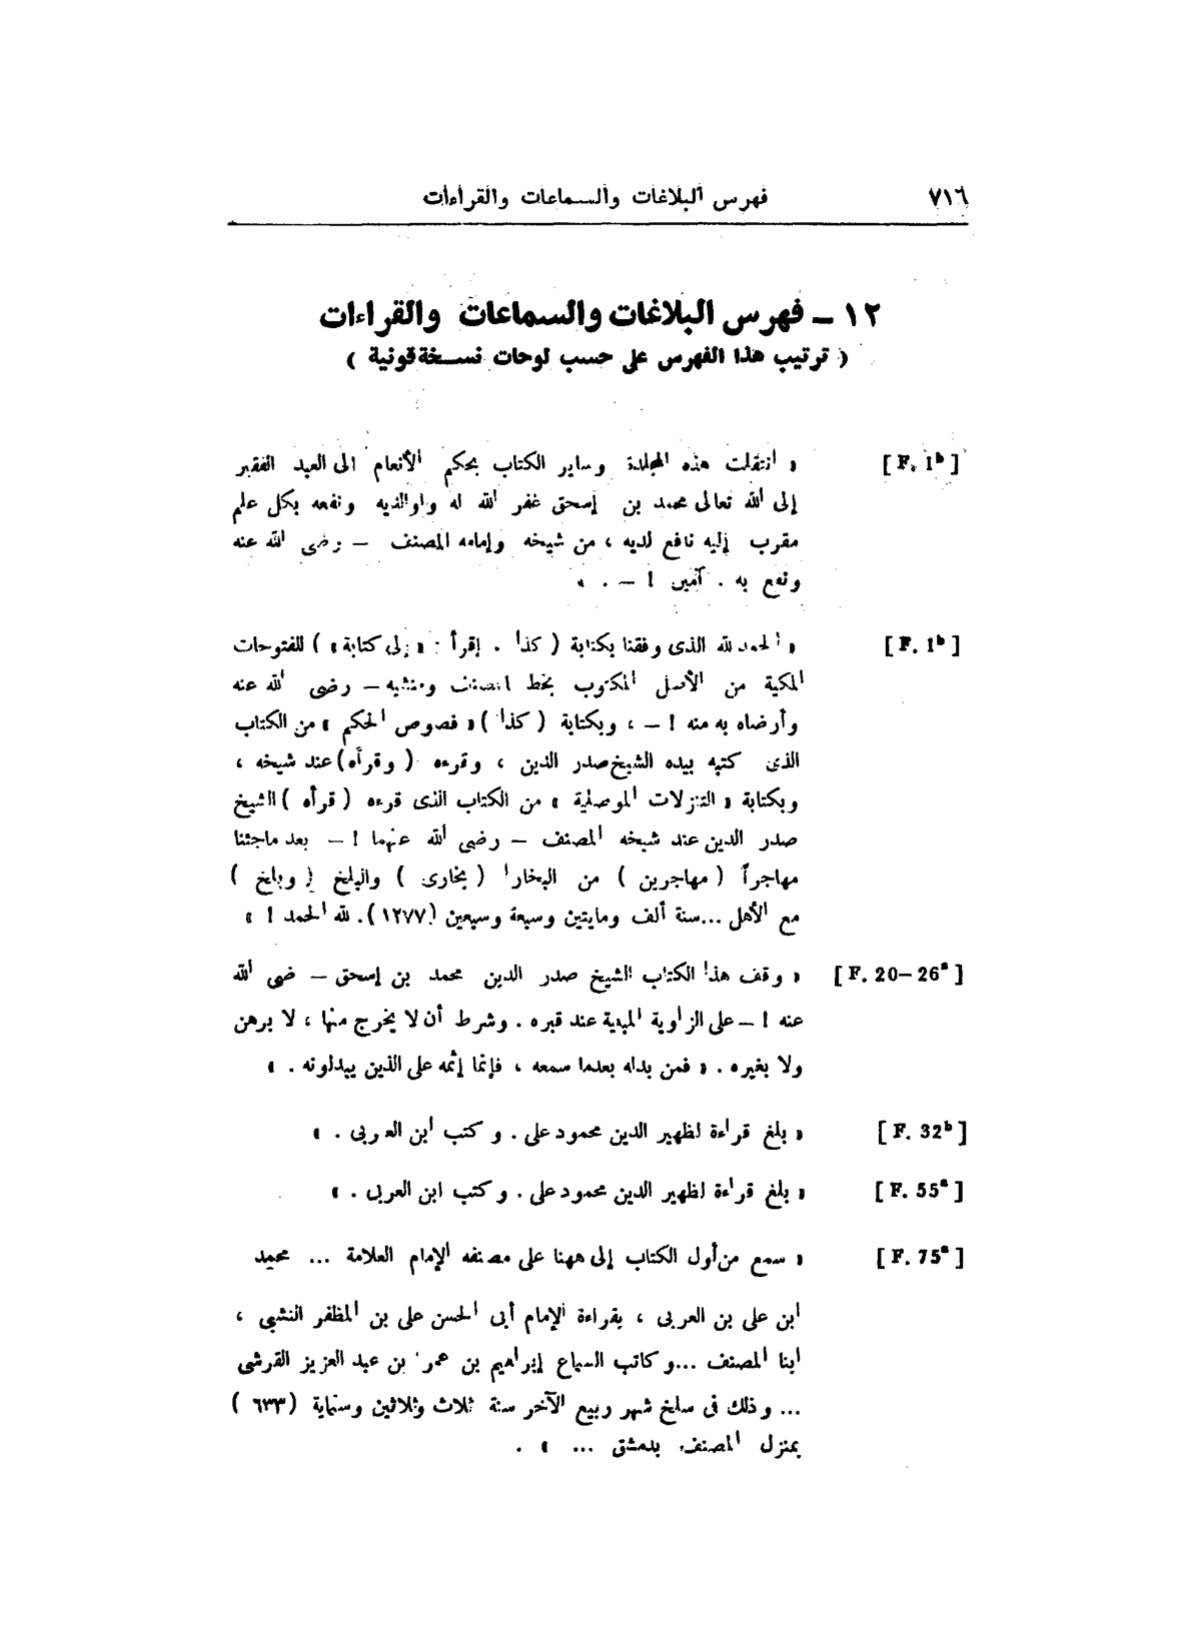 ٧١٦ فهرس البلاغات والسماعات والقراءات
١٢ – فهرس البلاغات والسماعات والقراءات
( ترتيب هذا الفهرس على حسب لوحات نسخة قونية )
[ F. 1ᵇ ] « انتقلت هذه المجلدة وساير الكتاب بحكم الأنعام الى العبد الفقير
إلى الله تعالى محمد بن إسحق غفر الله له ولوالديه ونفعه بكل علم
مقرب إليه نافع لديه ، من شيخه وإمامه المصنف – رضى الله عنه
ونفع به . آمين ! – . »
[ F. 1ᵇ ] « الحمد لله الذى وفقنا بكتابة ( كذا . إقرأ : « إلى كتابة » ) للفتوحات
المكية من الأصل المكتوب بخط المصنف ومنشيه – رضى الله عنه
وأرضاه به منه ! – ، وبكتابة ( كذا ) « فصوص الحكم » من الكتاب
الذى كتبه بيده الشيخ صدر الدين ، وقرءه ( وقرأه ) عند شيخه ،
وبكتابة « التنزلات الموصلية » من الكتاب الذى قرءه ( قرأه ) الشيخ
صدر الدين عند شيخه المصنف – رضى الله عنهما ! – بعد ماجئنا
مهاجراً ( مهاجرين ) من البخارا ( بخارى ) والبلخ ( وبلخ )
مع الأهل ... سنة ألف ومايتين وسبعة وسبعين (١٢٧٧) . لله الحمد ! »
[ F. 20–26ᵃ ] « وقف هذا الكتاب الشيخ صدر الدين محمد بن إسحق – ضى الله
عنه ! – على الزاوية المبنية عند قبره . وشرط أن لا يخرج منها ، لا برهن
ولا بغيره . « فمن بدله بعدما سمعه ، فإنما إثمه على الذين يبدلونه . »
[ F. 32ᵇ ] « بلغ قراءة لظهير الدين محمود على . وكتب ابن العربى . »
[ F. 55ᵃ ] « بلغ قراءة لظهير الدين محمود على . وكتب ابن العربى . »
[ F. 75ᵃ ] « سمع من أول الكتاب إلى ههنا على مصنفه الإمام العلامة ... محمد
ابن على بن العربى ، بقراءة الإمام أبى الحسن على بن المظفر النشبى ،
ابنا المصنف ... وكاتب السماع إبراهيم بن عمر بن عبد العزيز القرشى
... وذلك فى سلخ شهر ربيع الآخر سنة ثلاث وثلاثين وستماية ( ٦٣٣ )
بمنزل المصنف بدمشق ... » .